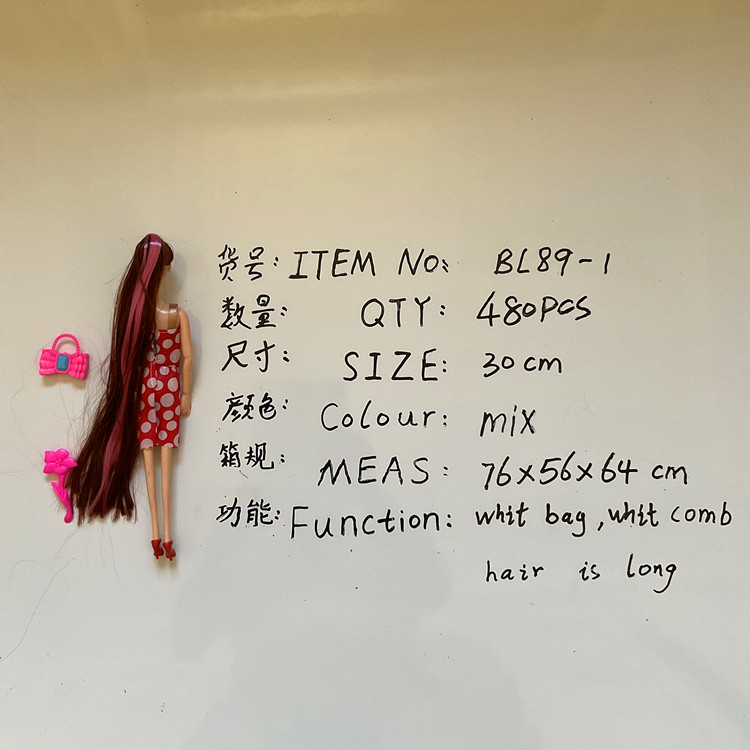 货号: ITEM NO: BL89-1
数量: QTY: 480PCS
尺寸: SIZE: 30cm
颜色: Colour: mix
箱规: MEAS: 76x56x64 cm
功能: Function: whit bag, whit comb
hair is long